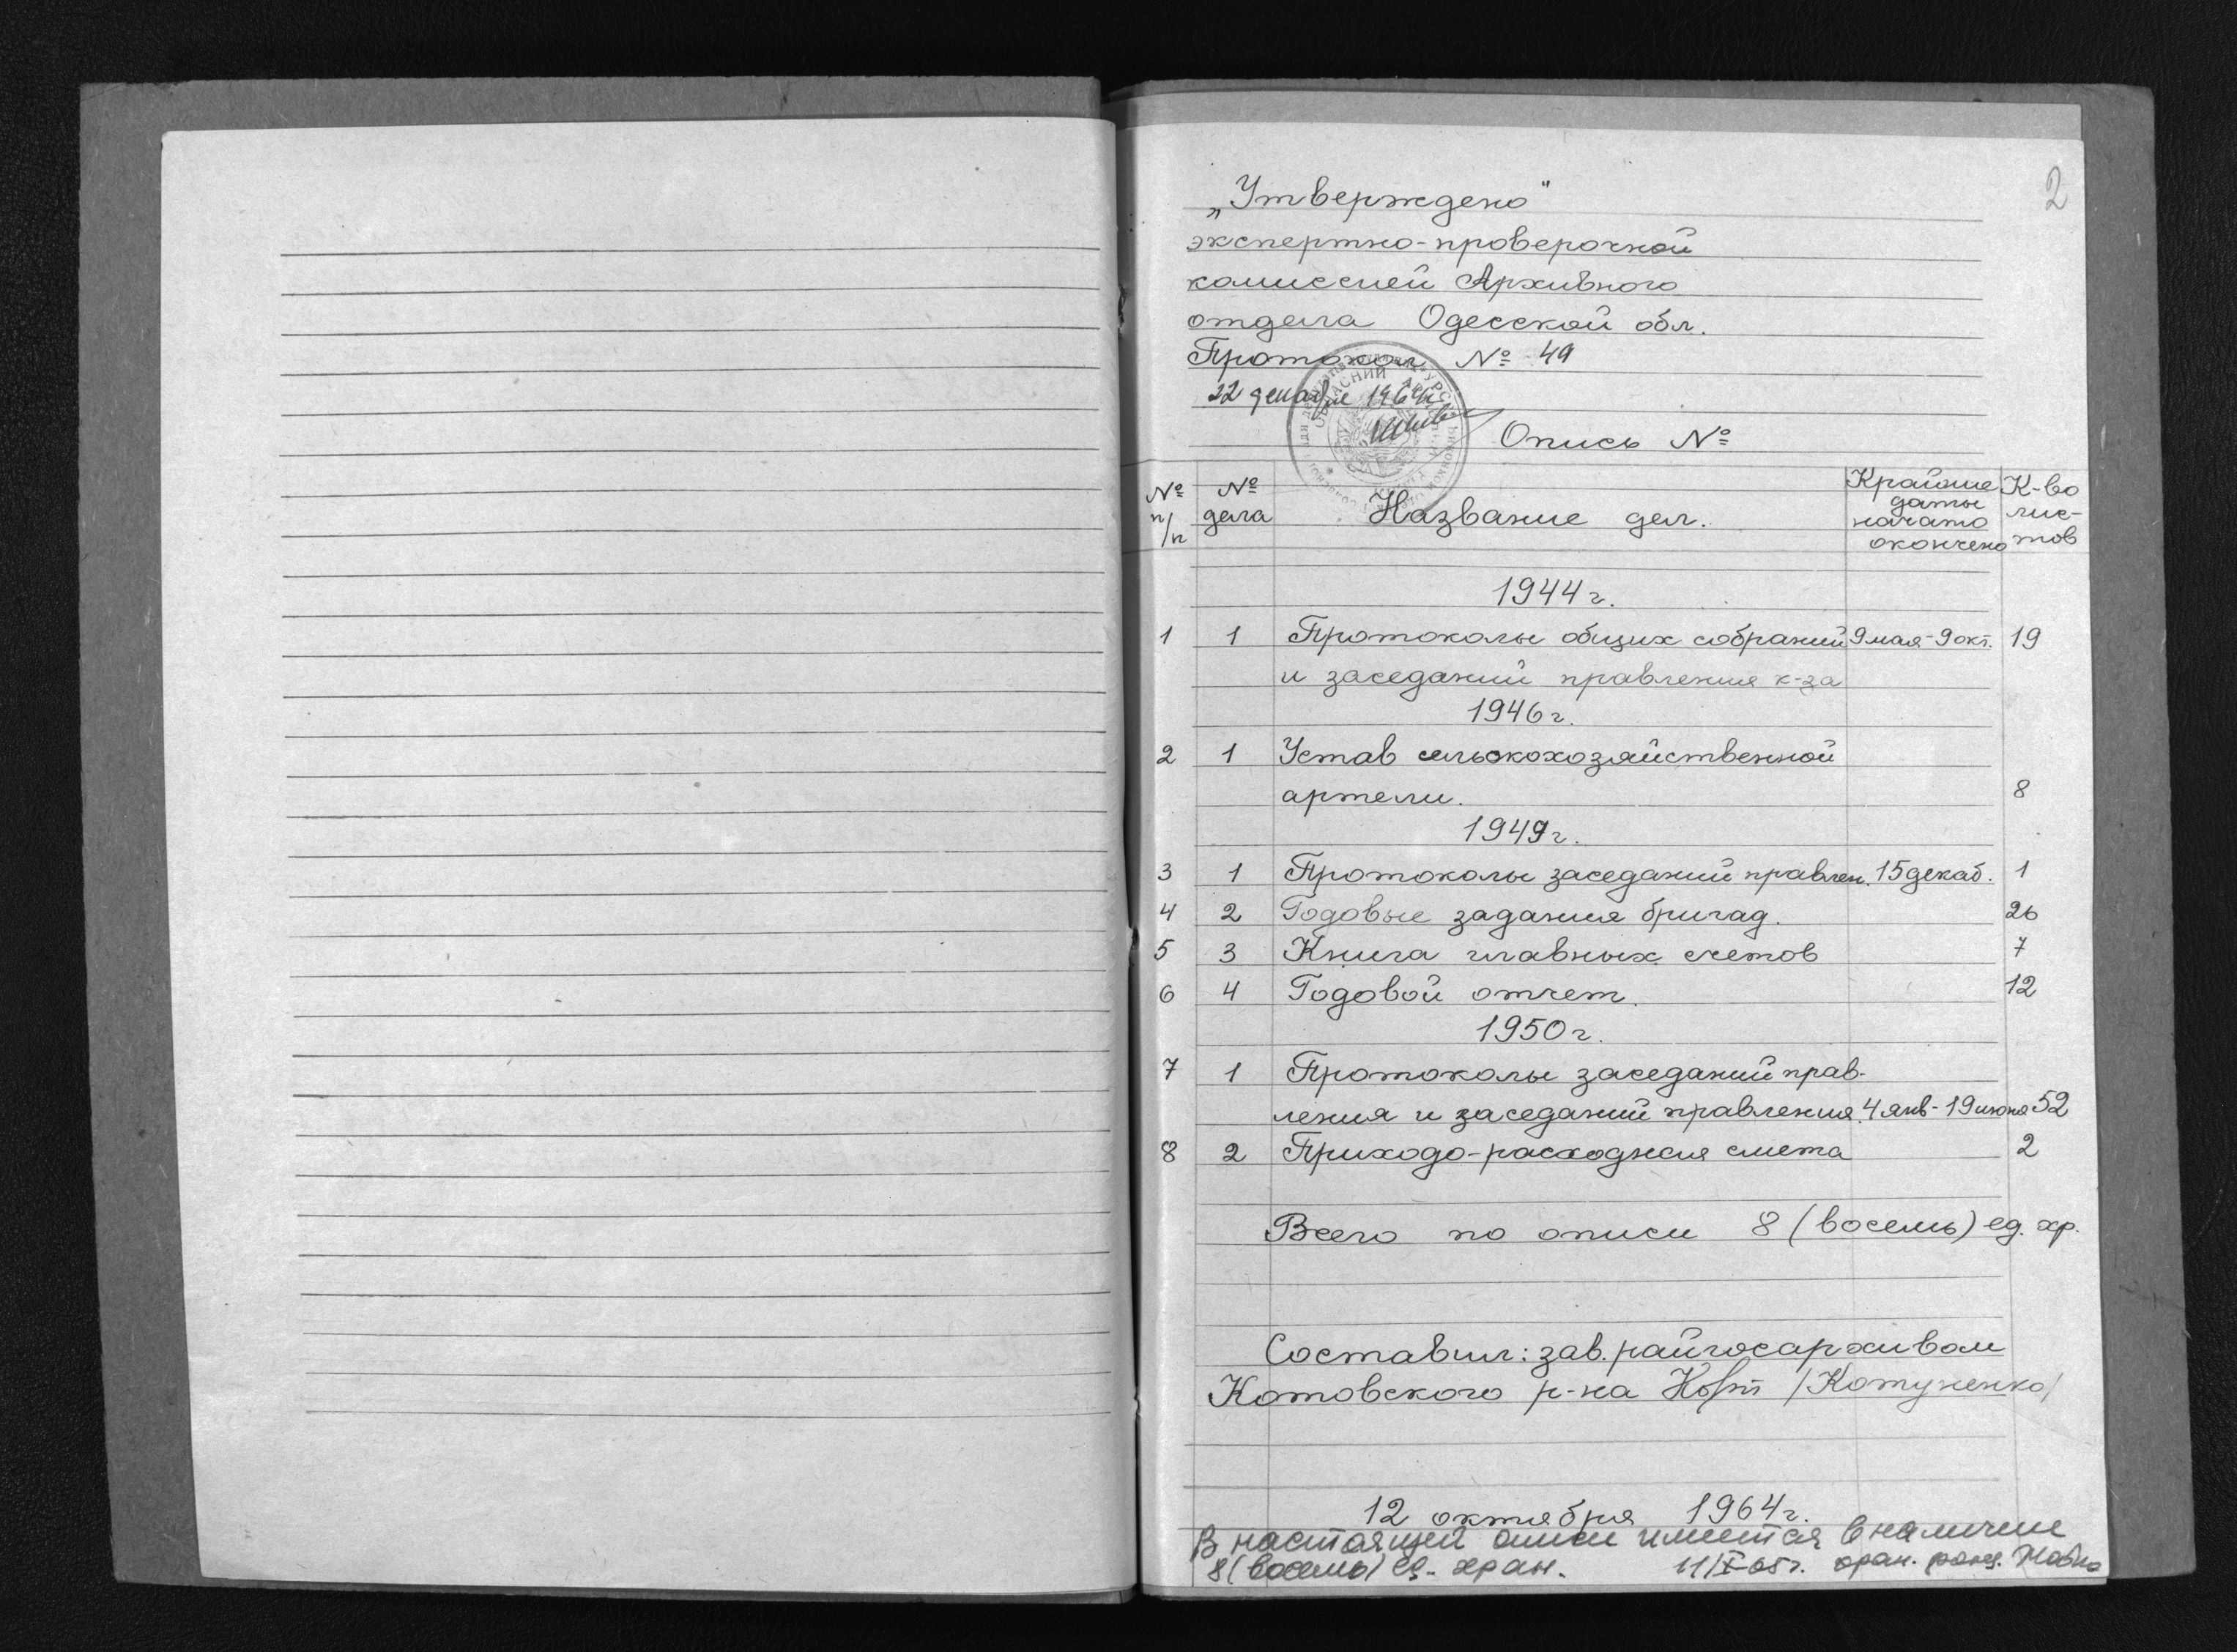 2
„Утверждено"
экспертно-проверочной
комиссией Архивного
отдела Одесской обл.
Протокол № 49
22 декабря 1964г.
Опись №
№ п/п № дела Название дел. Крайние даты начато окончено К-во листов
1944 г.
1 1 Протоколы общих собраний 9 мая-9 окт. 19
и заседаний правления к-за
1946 г.
2 1 Устав сельскохозяйственной
артели. 8
1949 г.
3 1 Протоколы заседаний правлен. 15 декаб. 1
4 2 Годовые задания бригад. 26
5 3 Книга главных счетов 7
6 4 Годовой отчет. 12
1950 г.
7 1 Протоколы заседаний прав-
ления и заседаний правления. 4 янв-19 июня 52
8 2 Приходо-расходная смета 2
Всего по описи 8 (восемь) ед. хр.
Составил: зав. райгосархивом
Котовского р-на /Котуненко/
12 октября 1964 г.
В настоящей описи имеется в наличие
8 (восемь) ед. хран. 11/X-65 г. хран.